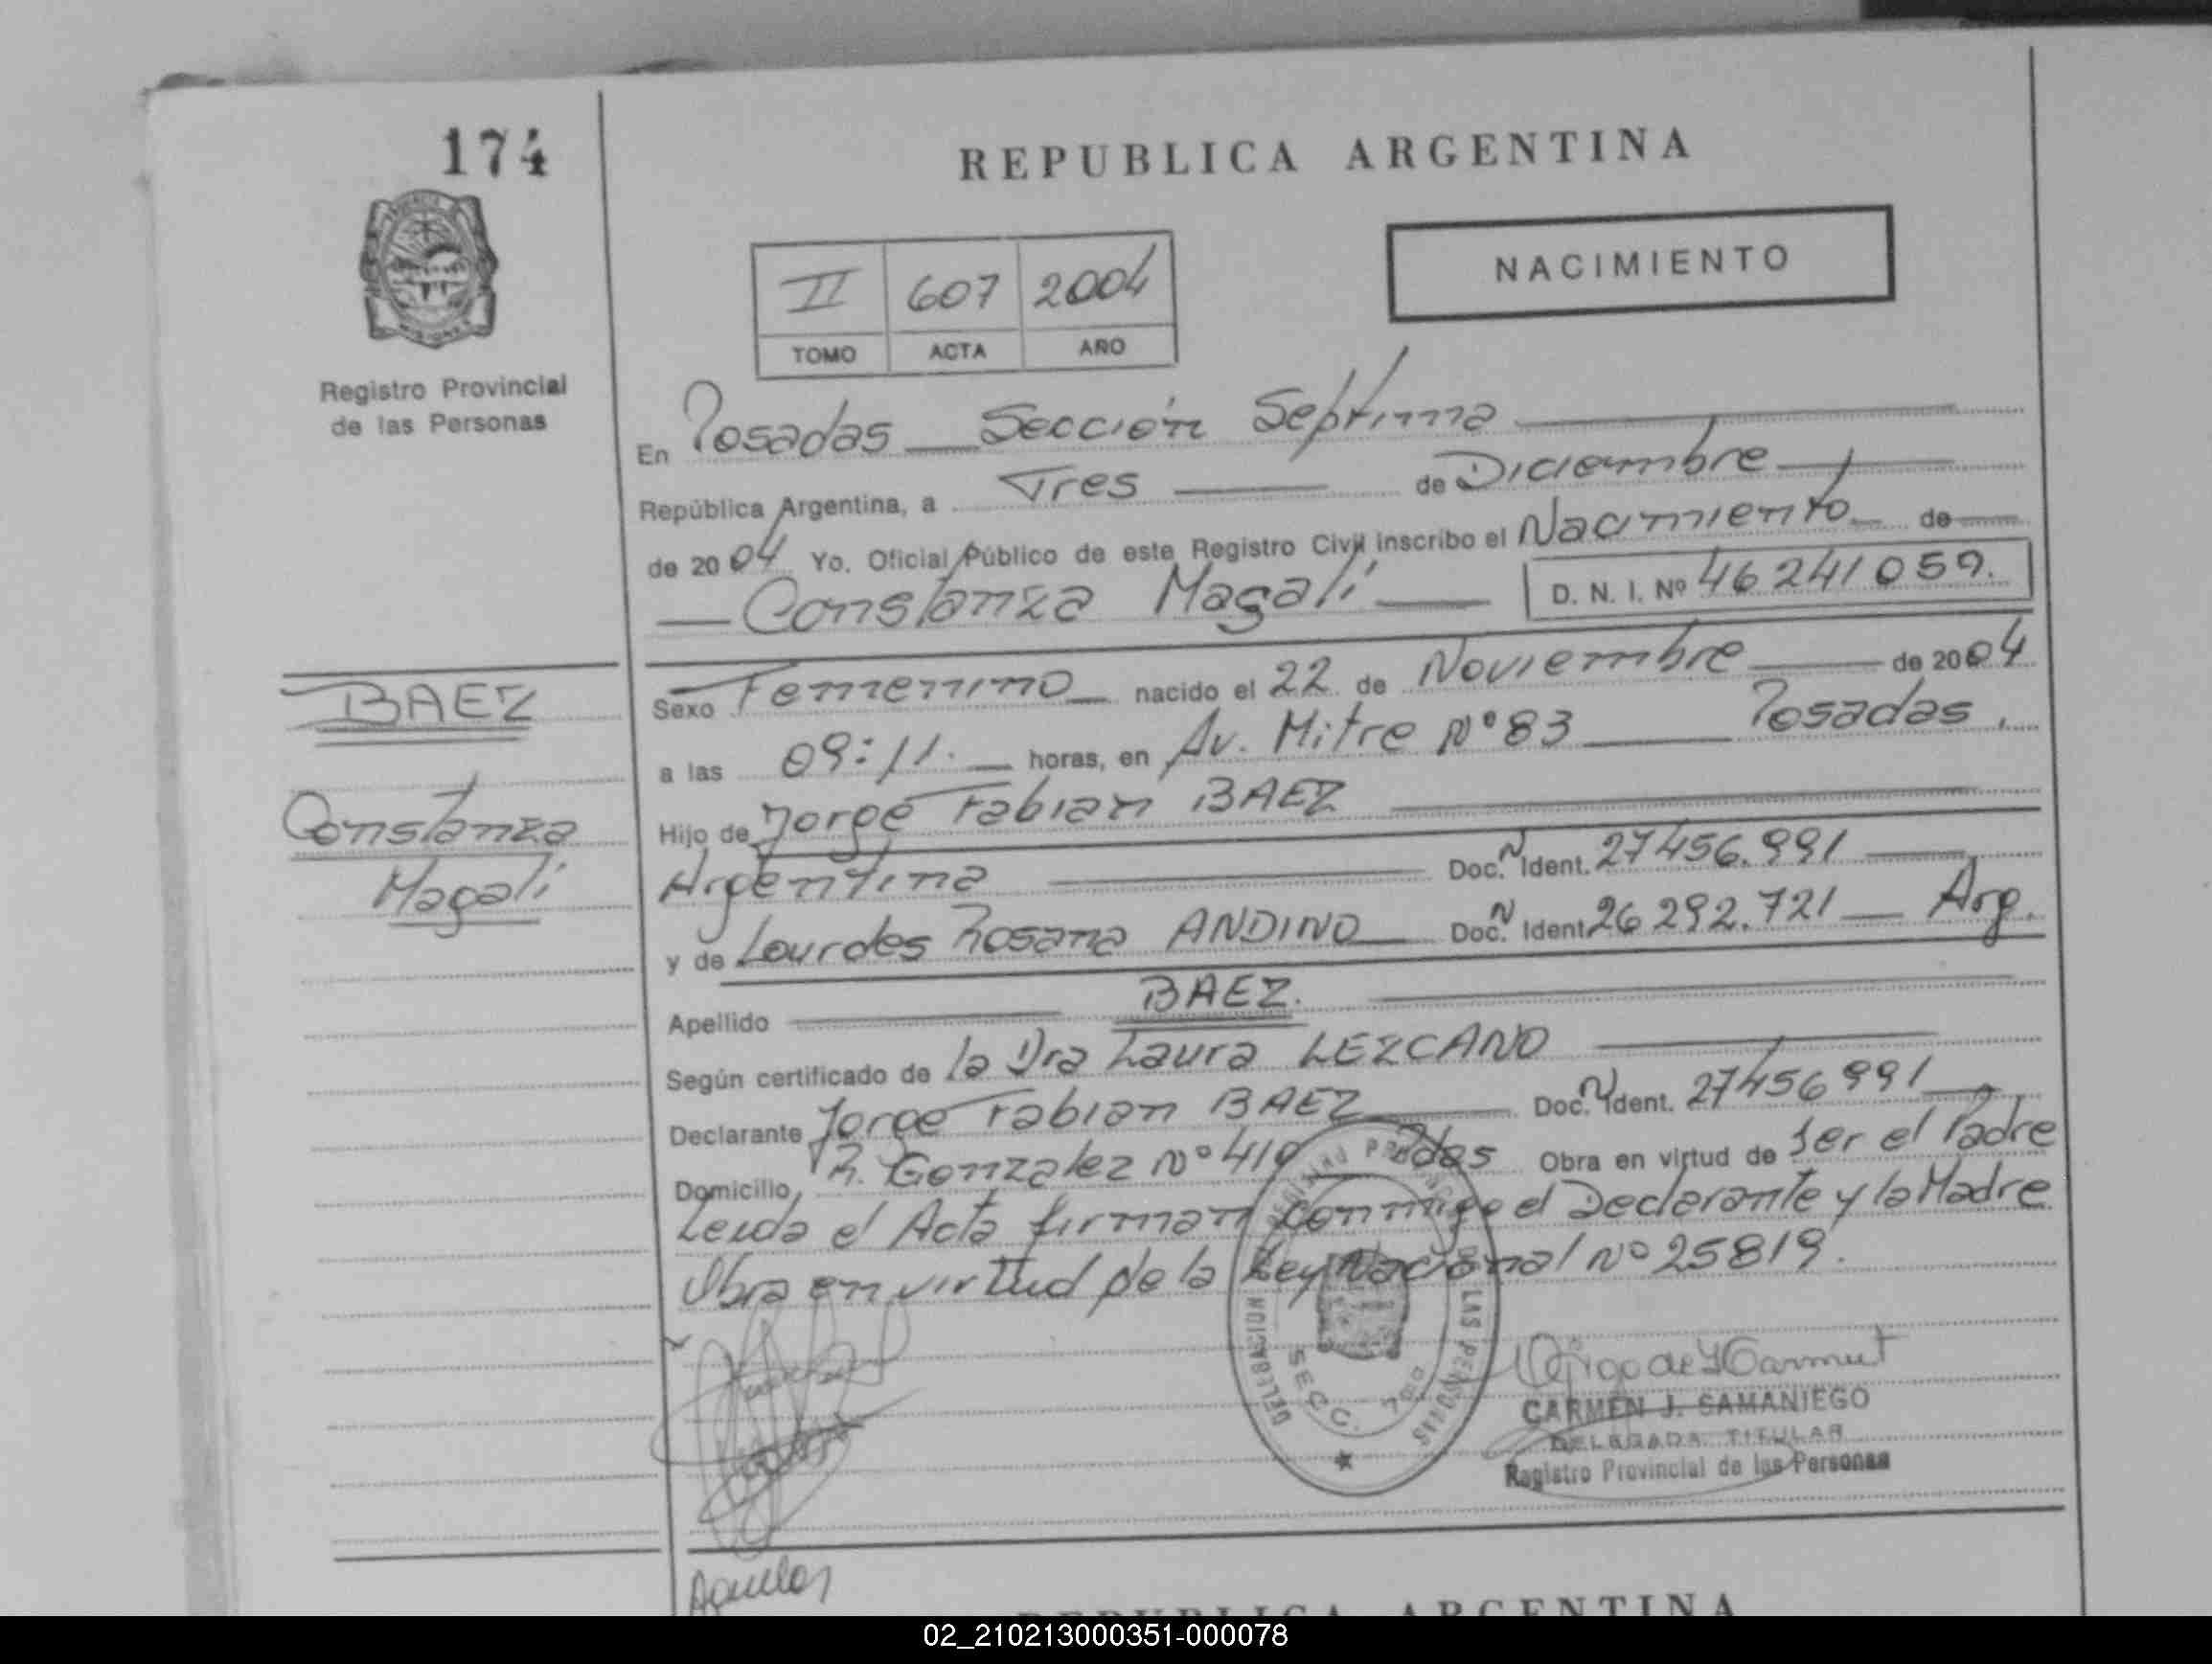 174
REPUBLICA ARGENTINA
NACIMIENTO
II 607 2004
TOMO ACTA AÑO
Registro Provincial
de las Personas
En Posadas — Sección Septima
República Argentina, a Tres de Diciembre
de 2004 Yo. Oficial Público de este Registro Civil inscribo el Nacimiento de
Constanza Magalí D. N. I. Nº 46241059.
BAEZ
Constanza
Magalí
Sexo Femenino nacido el 22 de Noviembre de 2004
a las 09:11. horas, en Av. Mitre Nº 83 Posadas.
Hijo de Jorge Fabian BAEZ
Argentina Doc. N Ident. 27456.991
y de Lourdes Rosana ANDINO Doc. N Ident 26292.721 — Arg.
Apellido BAEZ.
Según certificado de la Dra Laura LEZCANO
Declarante Jorge Fabian BAEZ Doc. N Ident. 27456991
Domicilio R. Gonzalez Nº 410 Pdas Obra en virtud de Ser el Padre
Leida el Acta firman conmigo el Declarante y la Madre
Obra en virtud de la Ley Nacional Nº 25819.
DELEGACION
LAS PERSONAS
SECC. 7ma
CARMEN J. SAMANIEGO
DELEGADA TITULAR
Registro Provincial de las Personas
REPUBLICA ARGENTINA
02_210213000351-000078